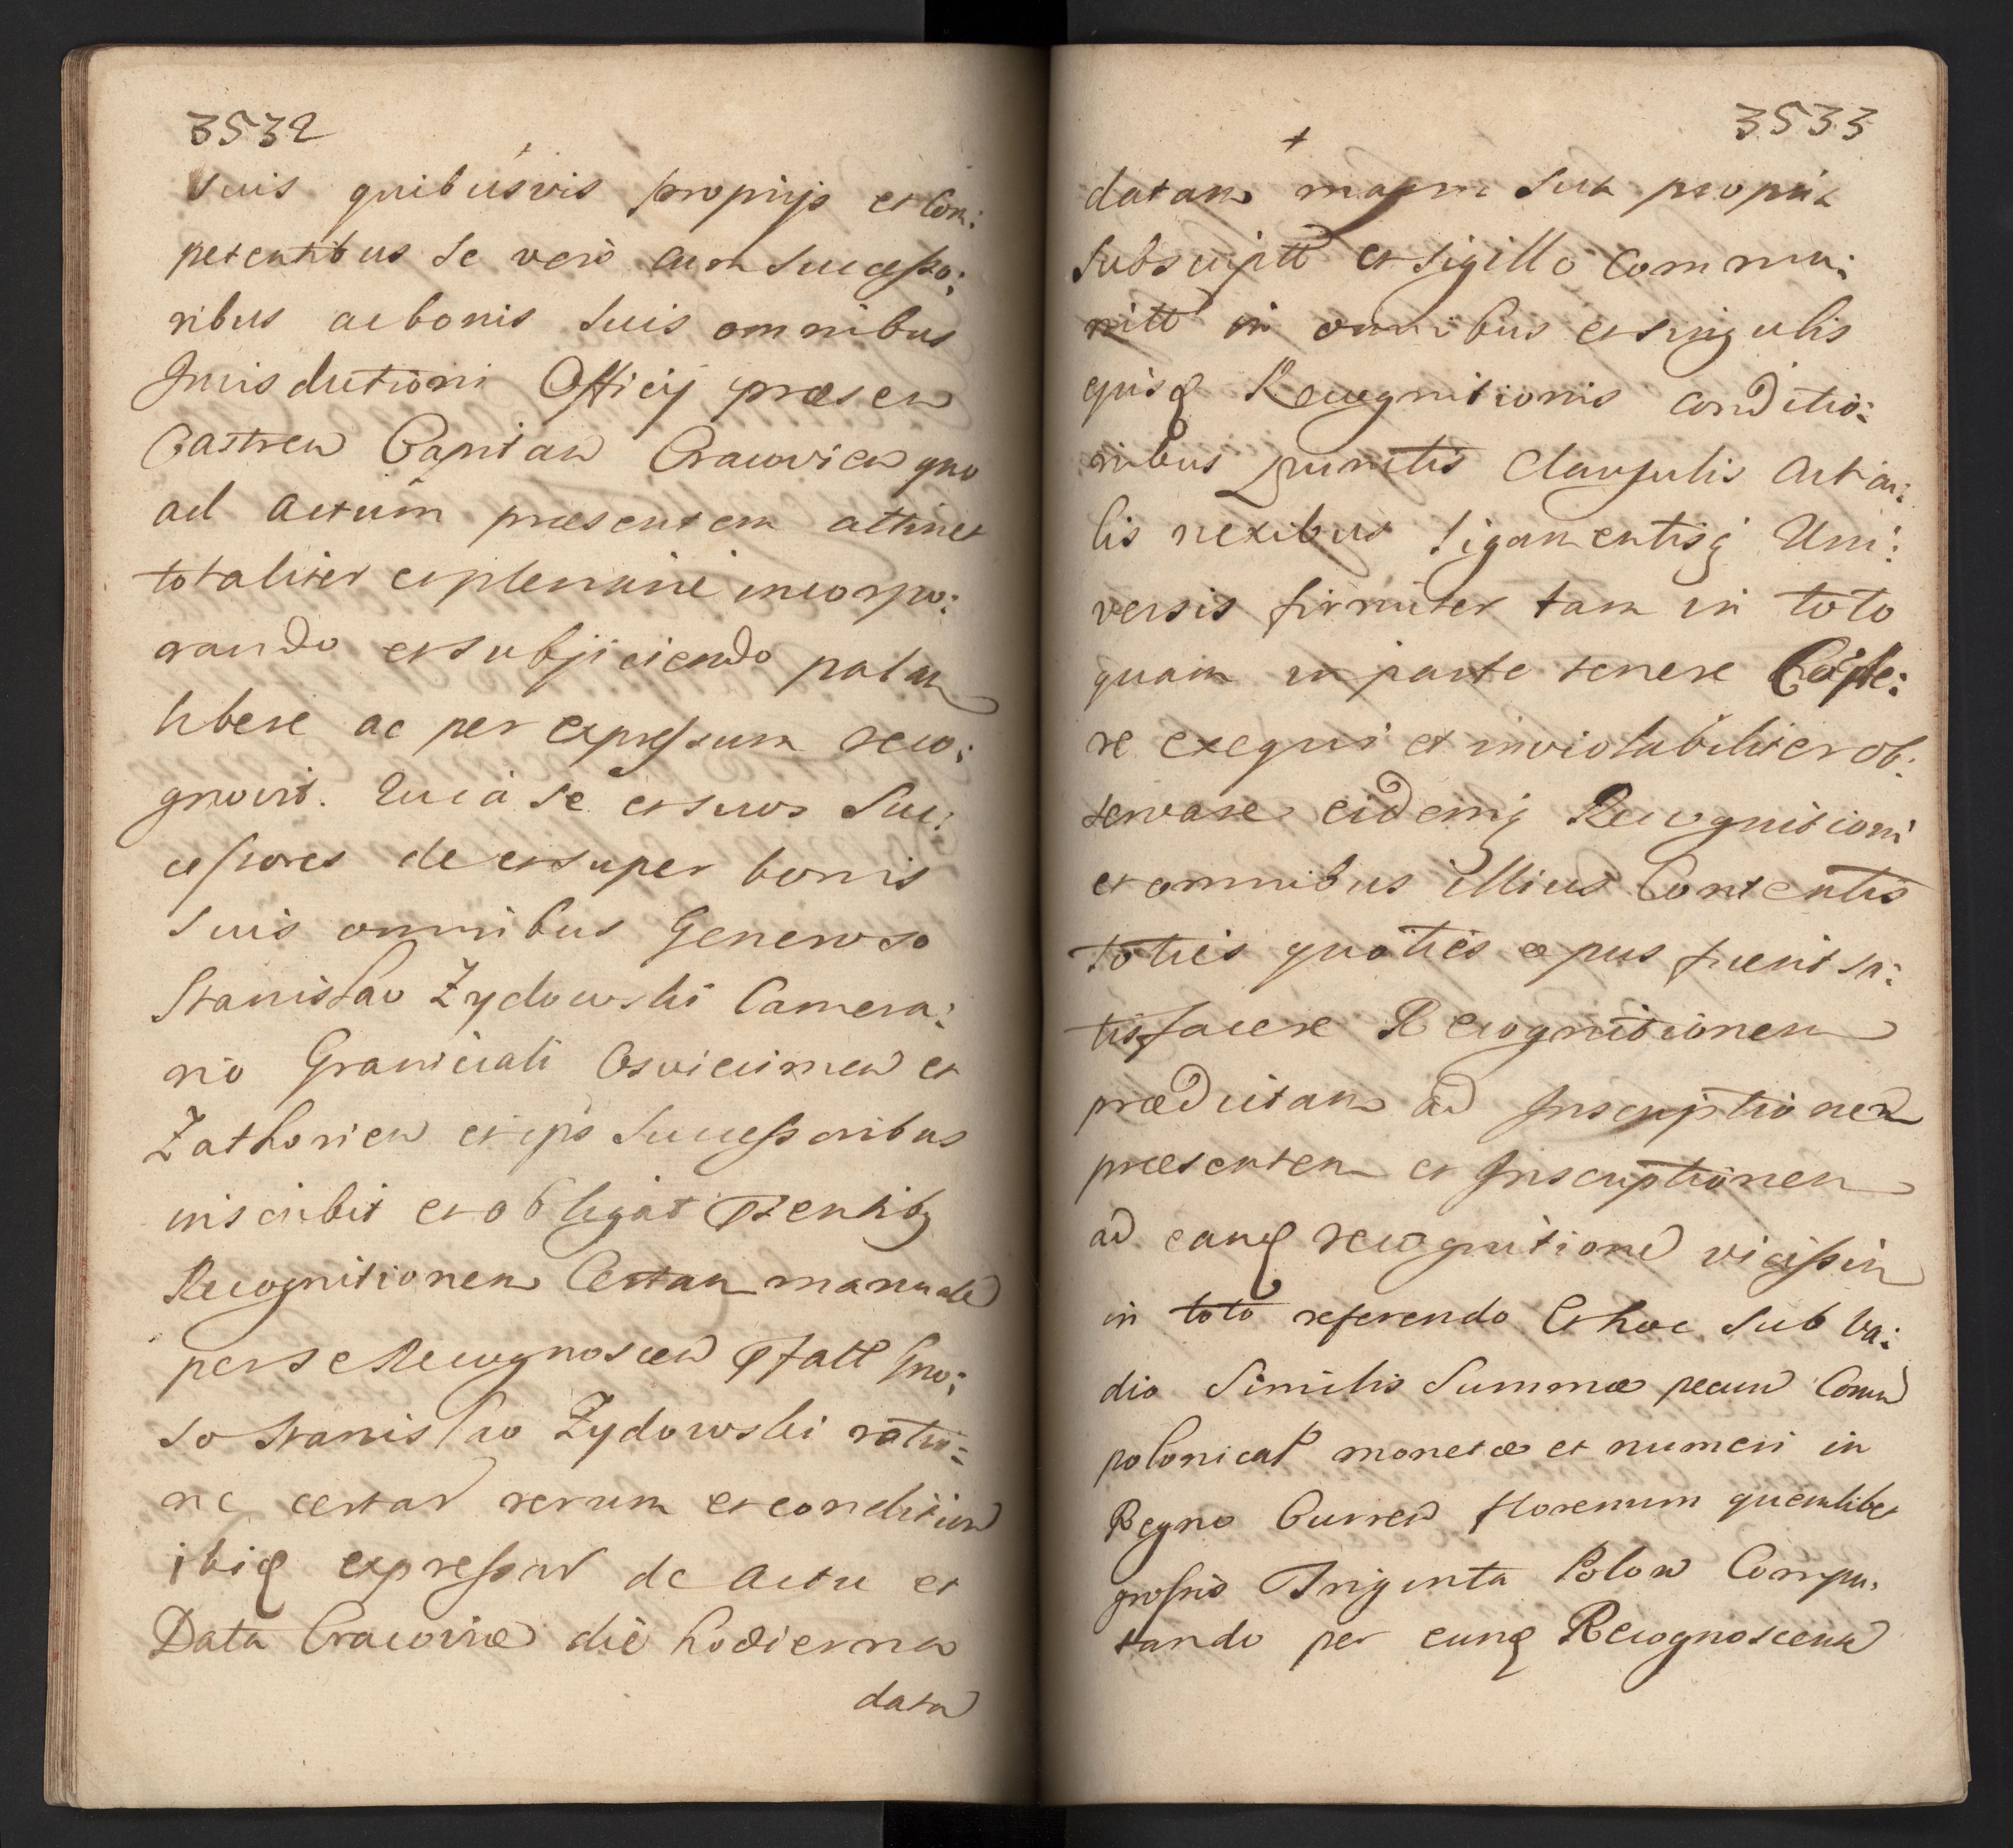 3532
suis quibusvis proprijs et Com:
petentibus se vero cum Successo:
ribus ac bonis suis omnibus
Jurisdictioni Officij præsen
Castren Capitan Cracovien quo
ad actum præsentem attinet
totaliter et plenarie incorpo:
rando et subjiciendo palam
libere ac per expressum reco:
gnovit. Quia se et suos Suc:
cessores de et super bonis
suis omnibus Generoso
Stanislao Zydowski Camera:
rio Graniciali Osviecimen et
Zathorien et ips Successoribus
inscribit et obligat
Recognitionem Certam manuale
per se Recognoscen Gno:
so Stanislao Zydowski ratio:
ne certar rerum et condition
ibiq expressar de Actu et
Data Cracoviæ die hodierna
data
3533
datam manu sua propria
Subscriptt et sigillo commu:
nitt in omnibus et singulis
ejusq Recognitionis conditio:
nibus punctis Clausulis Articu:
lis nexibus ligamentisq Uni:
versis firmiter tam in toto
quam in parte tenere Comple:
re exequi et inviolabiliter ob:
servare eidemq Recognitioni
et omnibus illius Contentis
toties quoties opus fuerit sa:
tisfacere Recognitionem
prædictam ad Inscriptionem
præsentem et Inscriptionem
ad eanq recognitione vicissim
in toto referendo Et hoc sub va:
dio Similis Summæ pecun
polonical monetæ et numeri in
Regno Curren florenum quemlibet
grossis Triginta Polon Compu:
tando per eunq Recognoscen